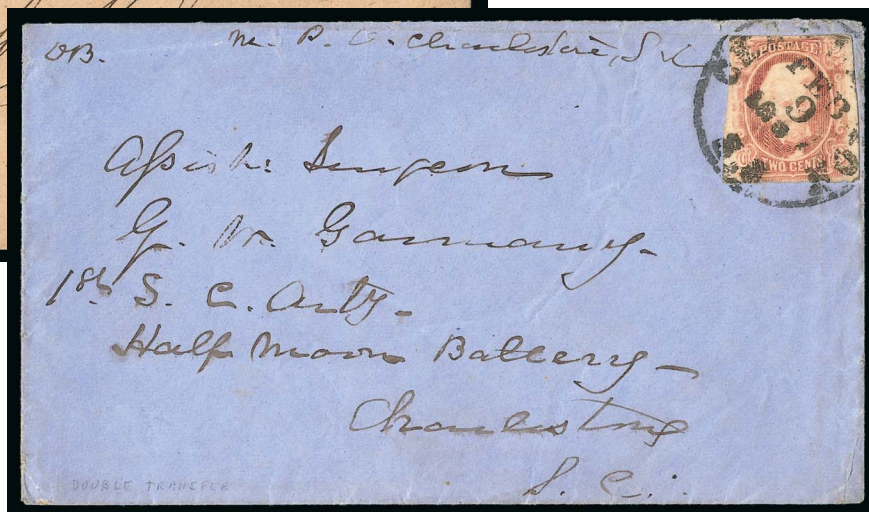 DB. M. P. O. Charleston, S. C.
C.S. POSTAGE
FEB 9
TWO CENTS
Assist. Surgeon
G. W. Garmany
1st S. C. Arty.
Half Moon Battery
Charleston
S. C.
DOUBLE TRANSFER